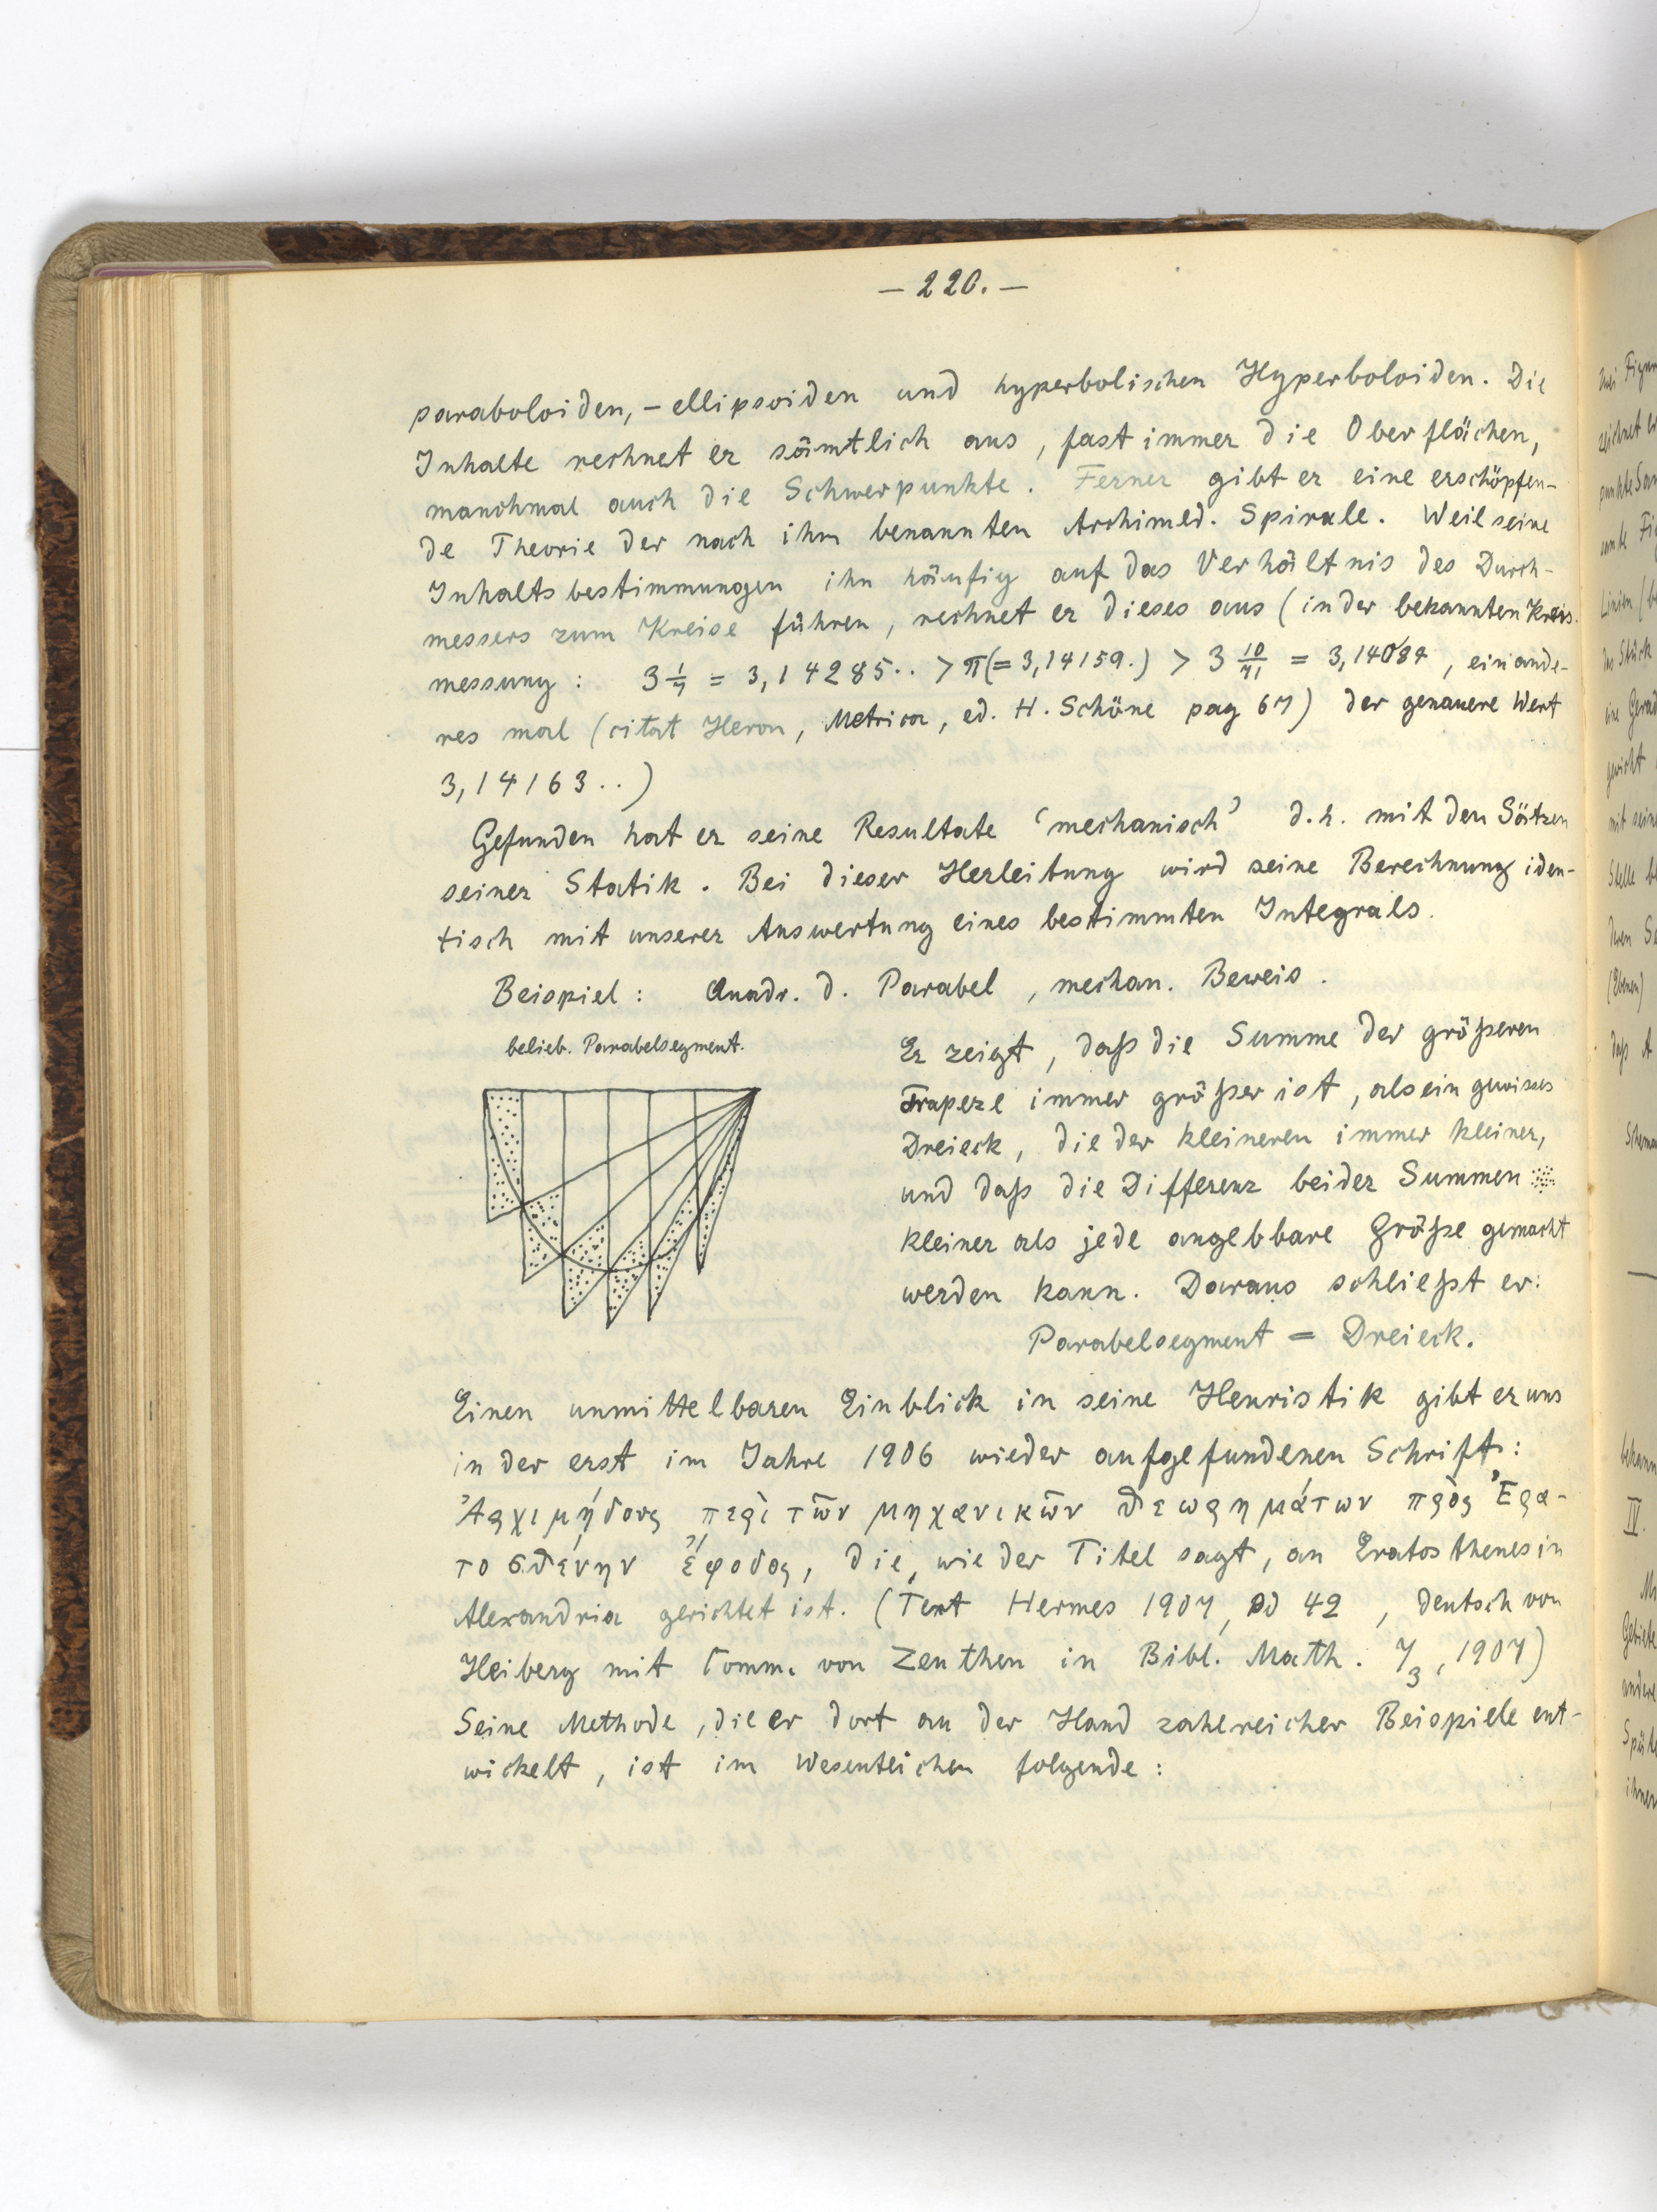 — 220. —
paraboloiden, – ellipsoiden und hyperbolischen Hyperboloiden. Die
Inhalte rechnet er sämtlich aus, fast immer die Oberflächen,
manchmal auch die Schwerpunkte. Ferner gibt er eine erschöpfen-
de Theorie der nach ihm benannten Archimed. Spirale. Weil seine
Inhaltsbestimmungen ihn häufig auf das Verhältnis des Durch-
messers zum Kreise führen, rechnet er dieses aus (in der bekannten Kreis-
messung: 3 1/7 = 3,14285.. > π (= 3,14159.) > 3 10/71 = 3,14084, ein ande-
res mal (citat Heron, Metrica, ed. H. Schöne pag 67) der genauere Wert
3,14163..)
Gefunden hat er seine Resultate 'mechanisch' d.h. mit den Sätzen
seiner Statik. Bei dieser Herleitung wird seine Berechnung iden-
tisch mit unserer Auswertung eines bestimmten Integrals.
Beispiel: Quadr. d. Parabel, mechan. Beweis.
belieb. Parabelsegment.
Er zeigt, daß die Summe der größeren
Trapeze immer größer ist, als ein gewisses
Dreieck, die der kleineren immer kleiner,
und daß die Differenz beider Summen
kleiner als jede angebbare Größe gemacht
werden kann. Daraus schließt er:
Parabelsegment = Dreieck.
Einen unmittelbaren Einblick in seine Heuristik gibt er uns
in der erst im Jahre 1906 wieder aufgefundenen Schrift:
Ἀρχιμήδους περὶ τῶν μηχανικῶν θεωρημάτων πρὸς Ἐρα-
τοσθένην ἔφοδος, die, wie der Titel sagt, an Eratosthenes in
Alexandria gerichtet ist. (Text Hermes 1907, Bd 42, deutsch von
Heiberg mit Comm. von Zeuthen in Bibl. Math. 7₃, 1907)
Seine Methode, die er dort an der Hand zahlreicher Beispiele ent-
wickelt, ist im Wesentlichen folgende: